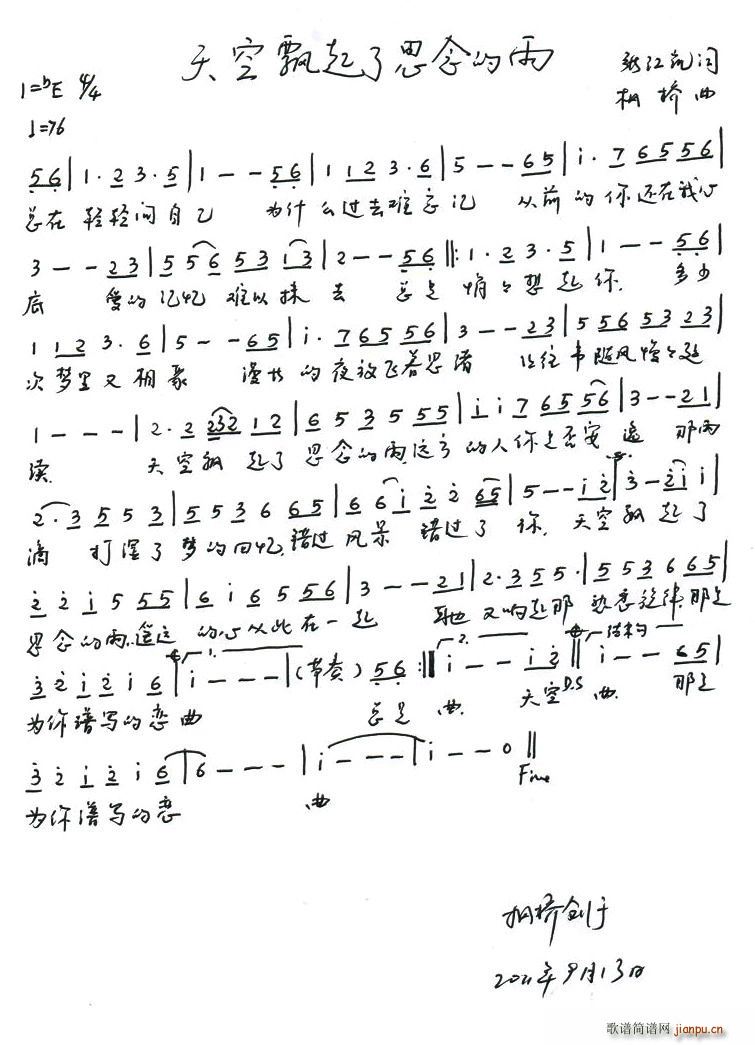 天空飘起了思念的雨
1=bE 4/4
词
桐桥 曲
♩=76
5 6 | 1 . 2 3 . 5 | 1 - - 5 6 | 1 1 2 3 . 6 | 5 - - 6 5 | i . 7 6 5 5 5 6 |
总在 轻轻问自己 为什么过去难忘记 从前的你还在我心
3 - - 2 3 | 5 5 6 5 3 1 3 | 2 - - 5 6 ‖: 1 . 2 3 . 5 | 1 - - 5 6 |
底 爱的记忆 难以抹去 总是 悄々想起你. 多少
1 1 2 3 . 6 | 5 - - 6 5 | i . 7 6 5 5 5 6 | 3 - - 2 3 | 5 5 6 5 3 2 3 |
次梦里又相聚 漫长的夜放飞着思绪 让往事随风慢々延
1 - - - | 2 . 2 2 3 2 1 2 | 6 5 3 5 5 5 | i i 7 6 5 5 5 6 | 3 - - 2 1 |
续 天空飘起了 思念的雨,远方的人你是否安逸 那雨
2 . 3 5 5 3 | 5 5 3 6 6 5 | 6 6 i 2 2 6 5 | 5 - - i 2 | 3 - 2 i i |
滴 打湿了梦的回忆,错过风景 错过了 你. 天空飘起了
2 2 i 5 5 5 | 6 i 6 5 5 5 6 | 3 - - 2 1 | 2 . 3 5 5 . | 5 5 3 6 6 5 |
思念的雨,遥远的心从此在一起 又响起那 旋律,那是
3 2 i 2 i 6 | 1. i - - - | (节奏) 5 6 :‖ 2. i - - i 2 ‖ D.S 结构 i - - 6 5 |
为你谱写的恋曲 总是 曲. 天空 曲. 那是
3 2 i 2 i 6 | 6 - - - | i - - - | i - - 0 ‖
Fine
为你谱写的恋 曲
桐桥创于
2011年9月13日
歌谱简谱网
jianpu.cn